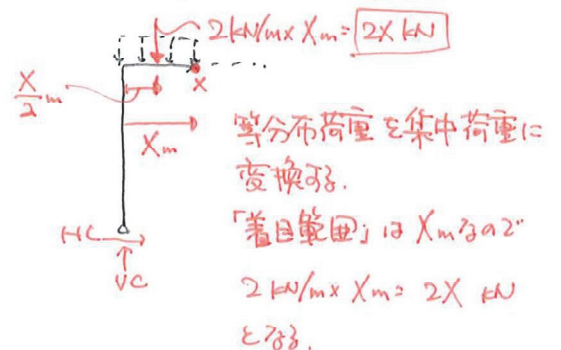 2kN/m× Xm= 2X kN
X
X/2 m
Xm
等分布荷重を集中荷重に
変換する.
「着目範囲」は Xmなので
HC
VC
2kN/m× Xm= 2X kN
となる.